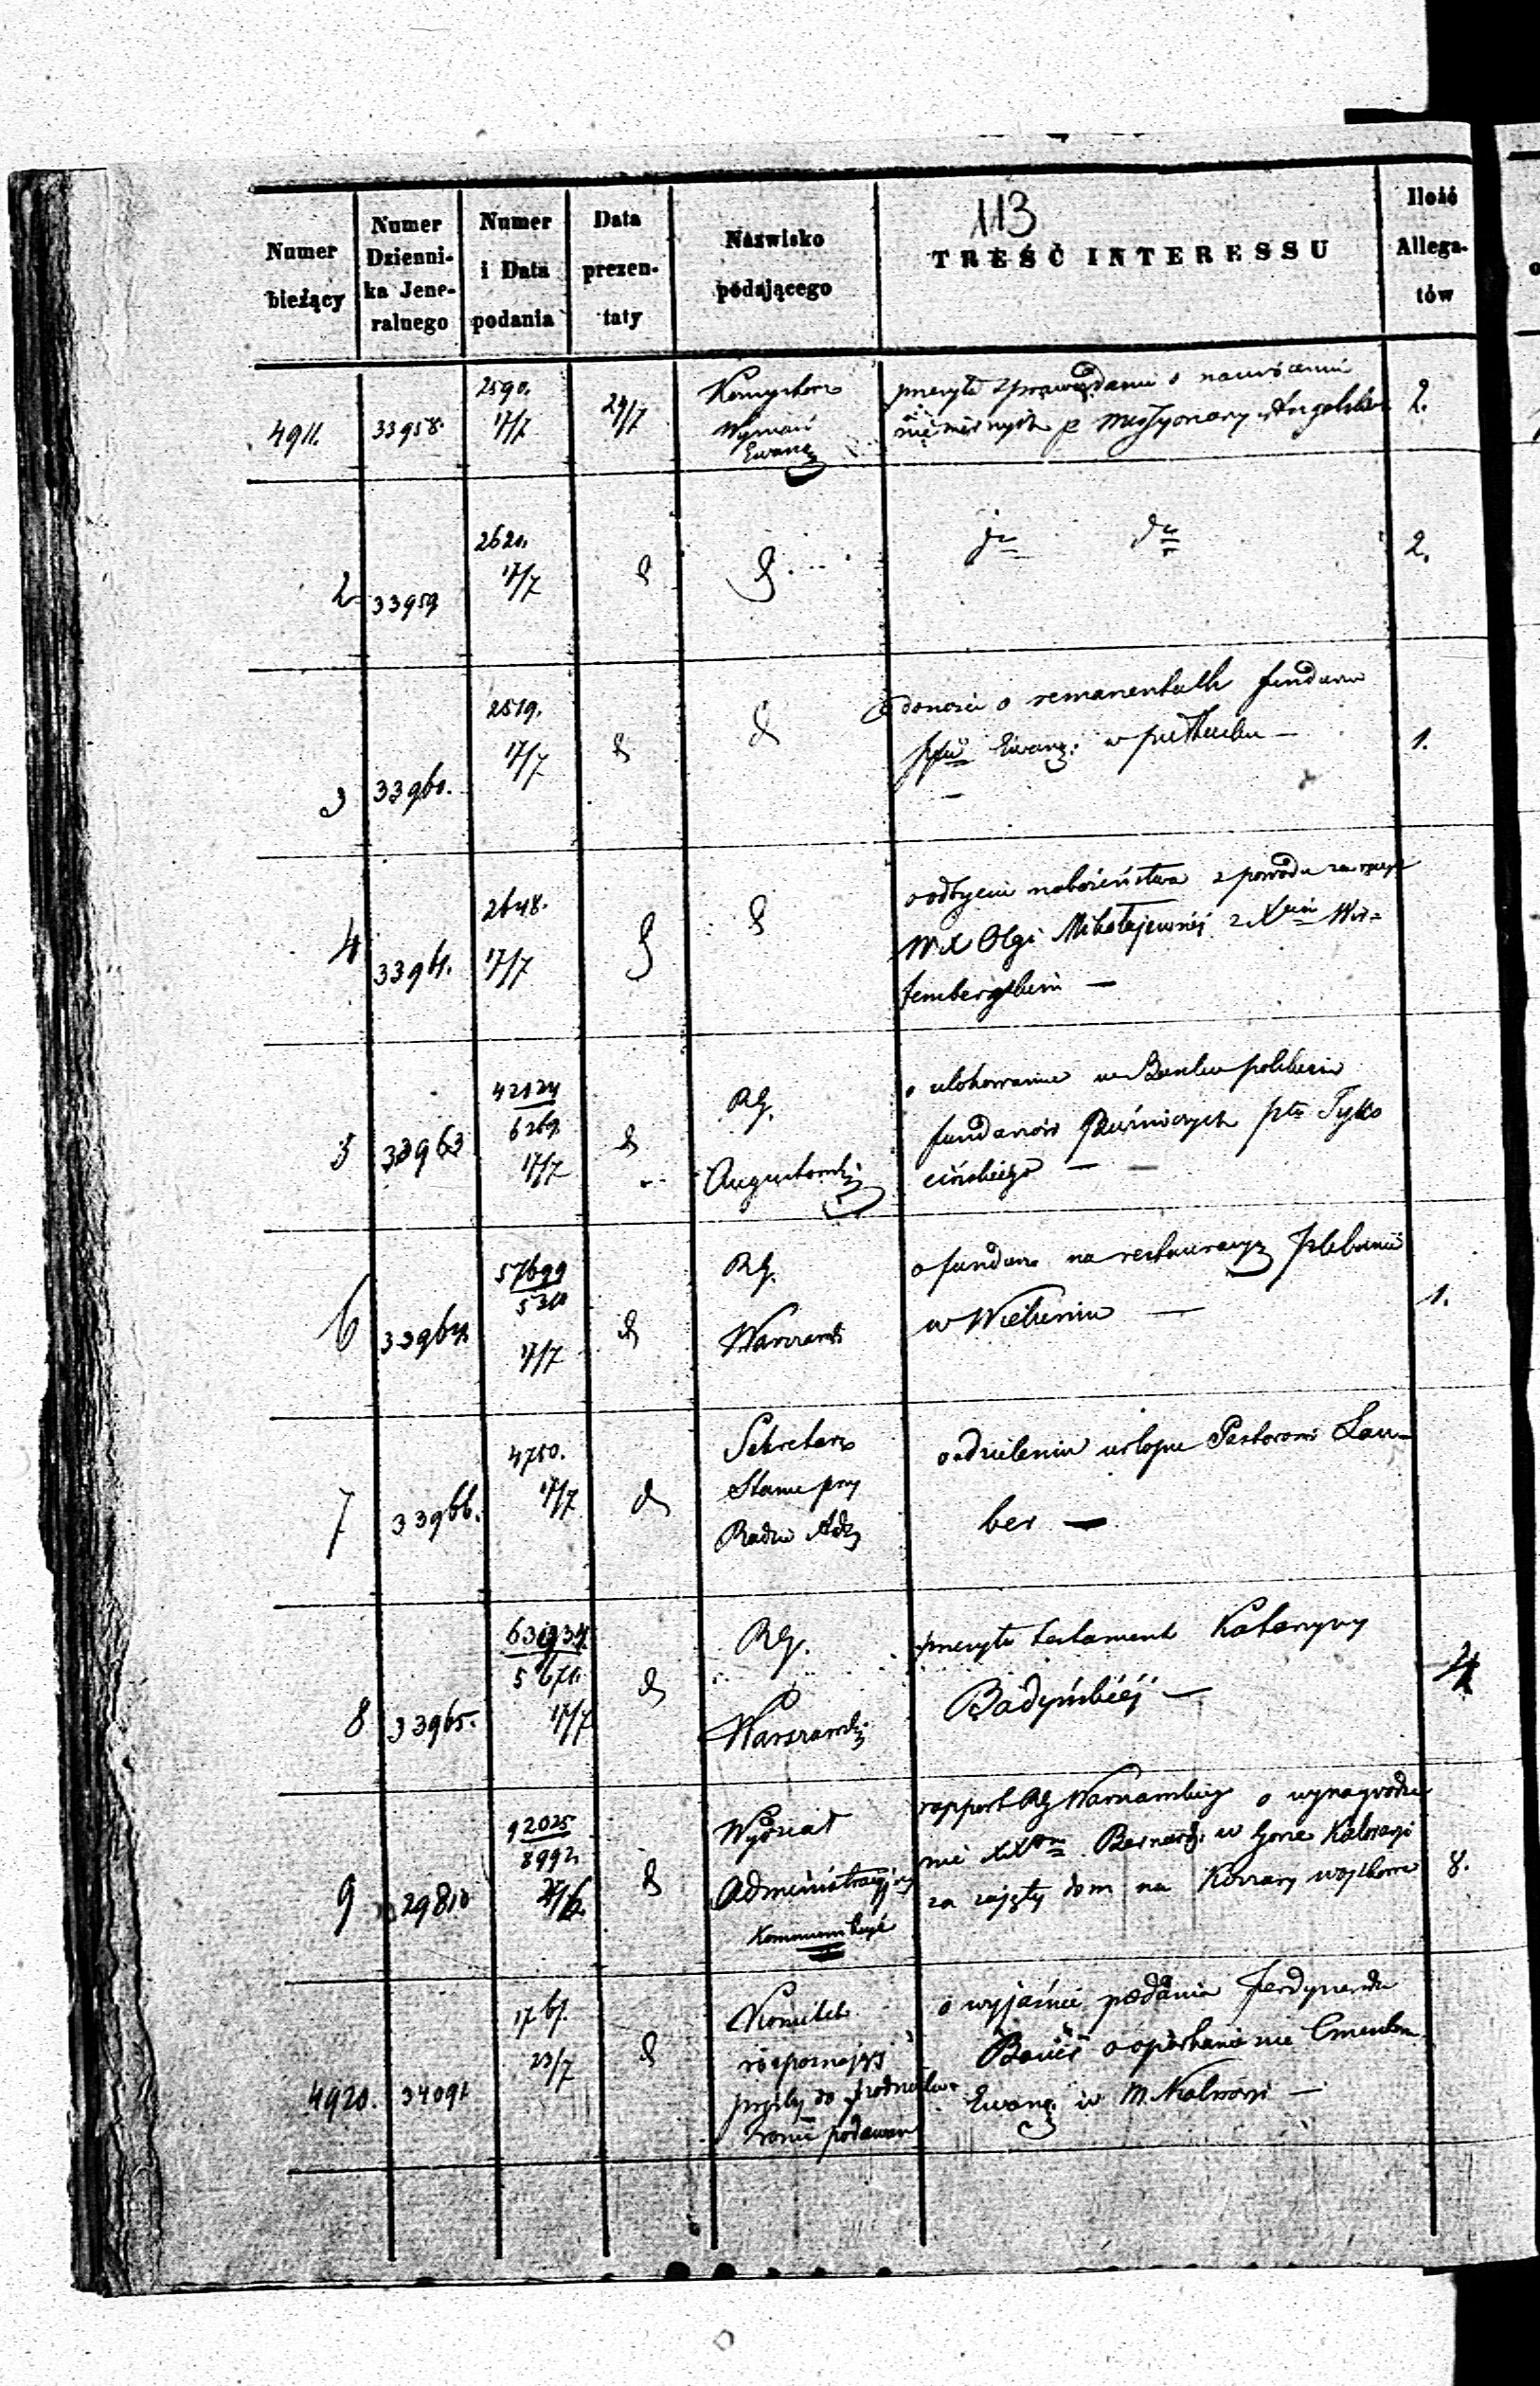 113
Numer bieżący
Numer Dzienni-ka Jene-ralnego
Numer i Data podania
Data prezen-taty
Nazwisko podającego
TREŚĆ INTERESSU
Ilość Allega-tów
4911. 33958. 2590. 17/7 24/7 Konsystorz Wyznań Ewang
przesyła sprawozdanie o nawróceniu
niewiernych p Missyonarzy Angielskich 2.
2 33959 2620. 17/7 d d
do do 2.
3 33960. 2519. 17/7 d d
donosi o remanentach funduszu
Ewang: w Pułtusku — 1.
4 33961. 2648. 17/7 d d
o odbyciu nabożeństwa z powodu
W X Olgi Mikołajewnéj z Xciem Wir=
tembergskim —
5 33963 42124 6269. 17/7 d RG. Augustowski
o ulokowanie w Banku polskim
funduszów pttu Tyko
cińskiego —
6 33964. 57699 5310 17/7 d RG. Warszawski
o fundusz na restauracyą Plebanii
w Wieluniu — 1.
7 33966. 4750. 17/7 d Sekretarz Stanu przy Radzie Adm
o udzielenie urlopu Pastorowi Lau-
ber —
8 33965. 5671. 17/7 d RG. Warszawski
przesyła testament Katarzyny
Badyńskiéj — 4
9 29810 92025 8992. d Wydział Administracyjny
rapport RG Warszawskiego o wynagrodze
nie XX Bernard: w Górze Kalwaryi
za zajęty dom na Koszary wojskowe 8.
4920. 34091 1767. 23/7 d Komitet
rozpoznający
prośby do
tronu podawane
o wyjaśnie podania Ferdynanda
o Cmentarza
Ewang: w M. Kalwaryi —